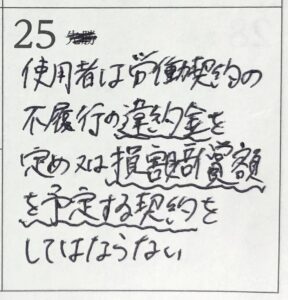 25
使用者は労働契約の
不履行の違約金を
定め又は損害賠償額
を予定する契約を
してはならない